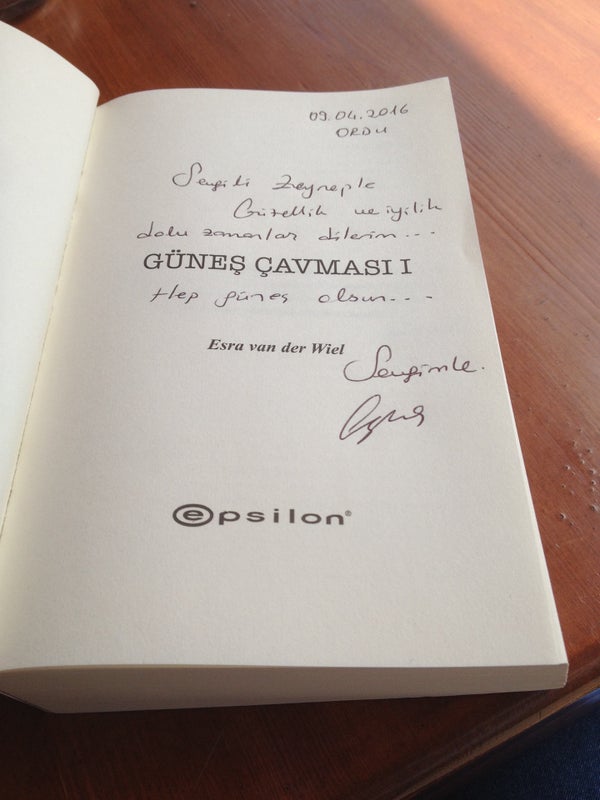 09.04.2016
ORDU
Sevgili Zeynep'le
Güzellik ve iyilik
dolu zamanlar dilerim...
GÜNEŞ ÇAVMASI I
Hep güneş olsun...
Esra van der Wiel
Sevgimle.
epsilon®